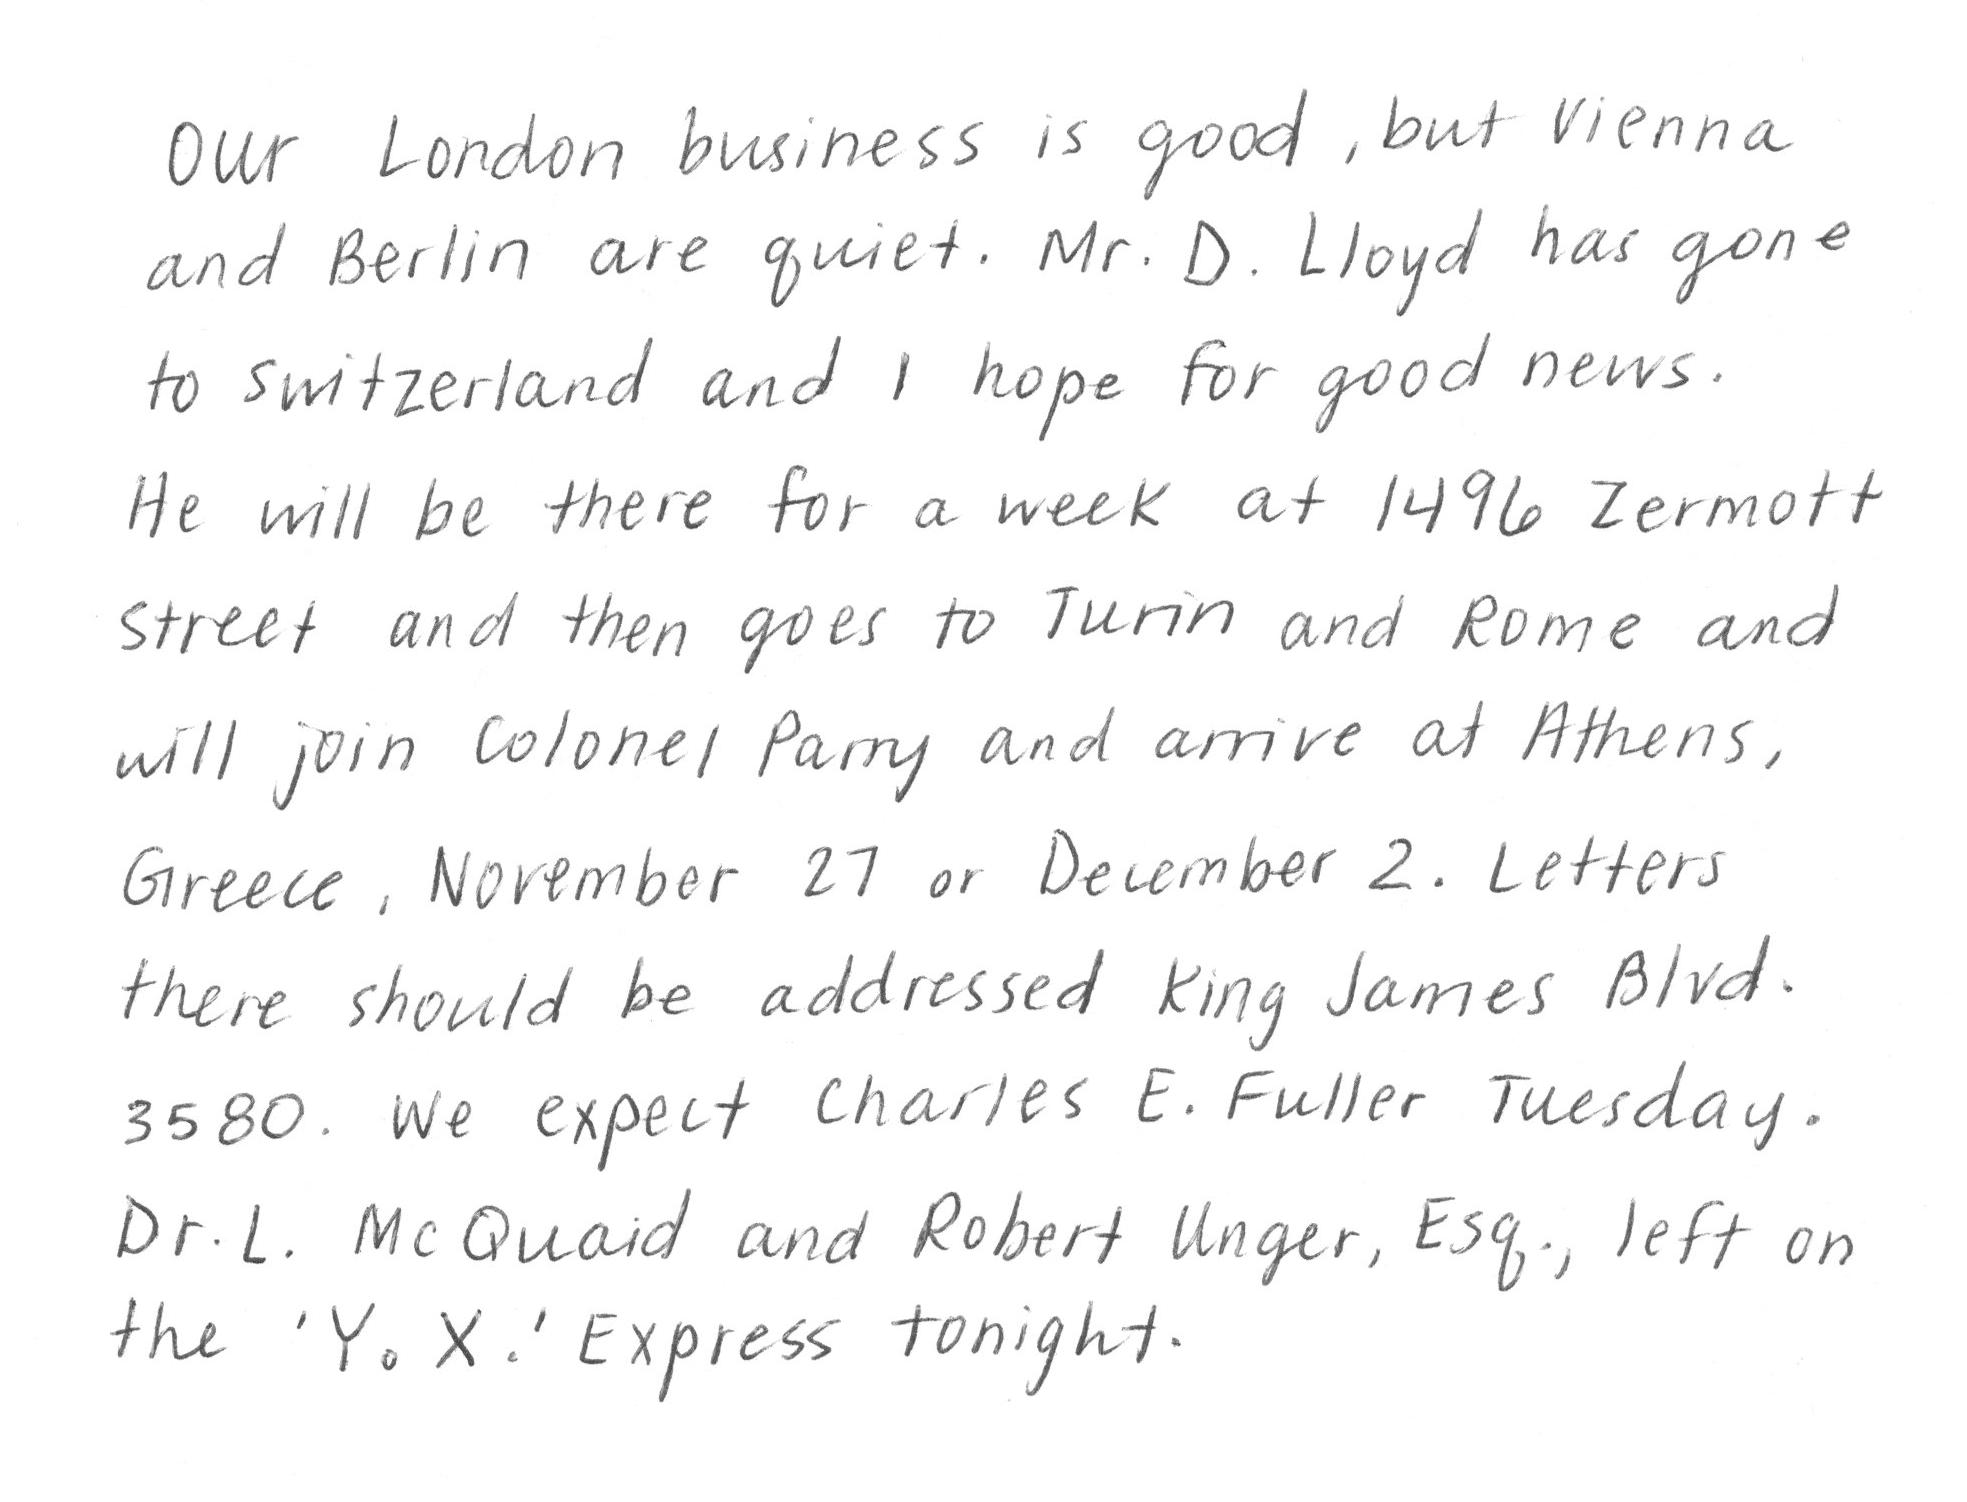 Our London business is good, but Vienna
and Berlin are quiet. Mr. D. Lloyd has gone
to Switzerland and I hope for good news.
He will be there for a week at 1496 Zermott
street and then goes to Turin and Rome and
will join Colonel Parry and arrive at Athens,
Greece, November 27 or December 2. Letters
there should be addressed King James Blvd.
3580. We expect Charles E. Fuller Tuesday.
Dr. L. McQuaid and Robert Unger, Esq., left on
the 'Y. X.' Express tonight.